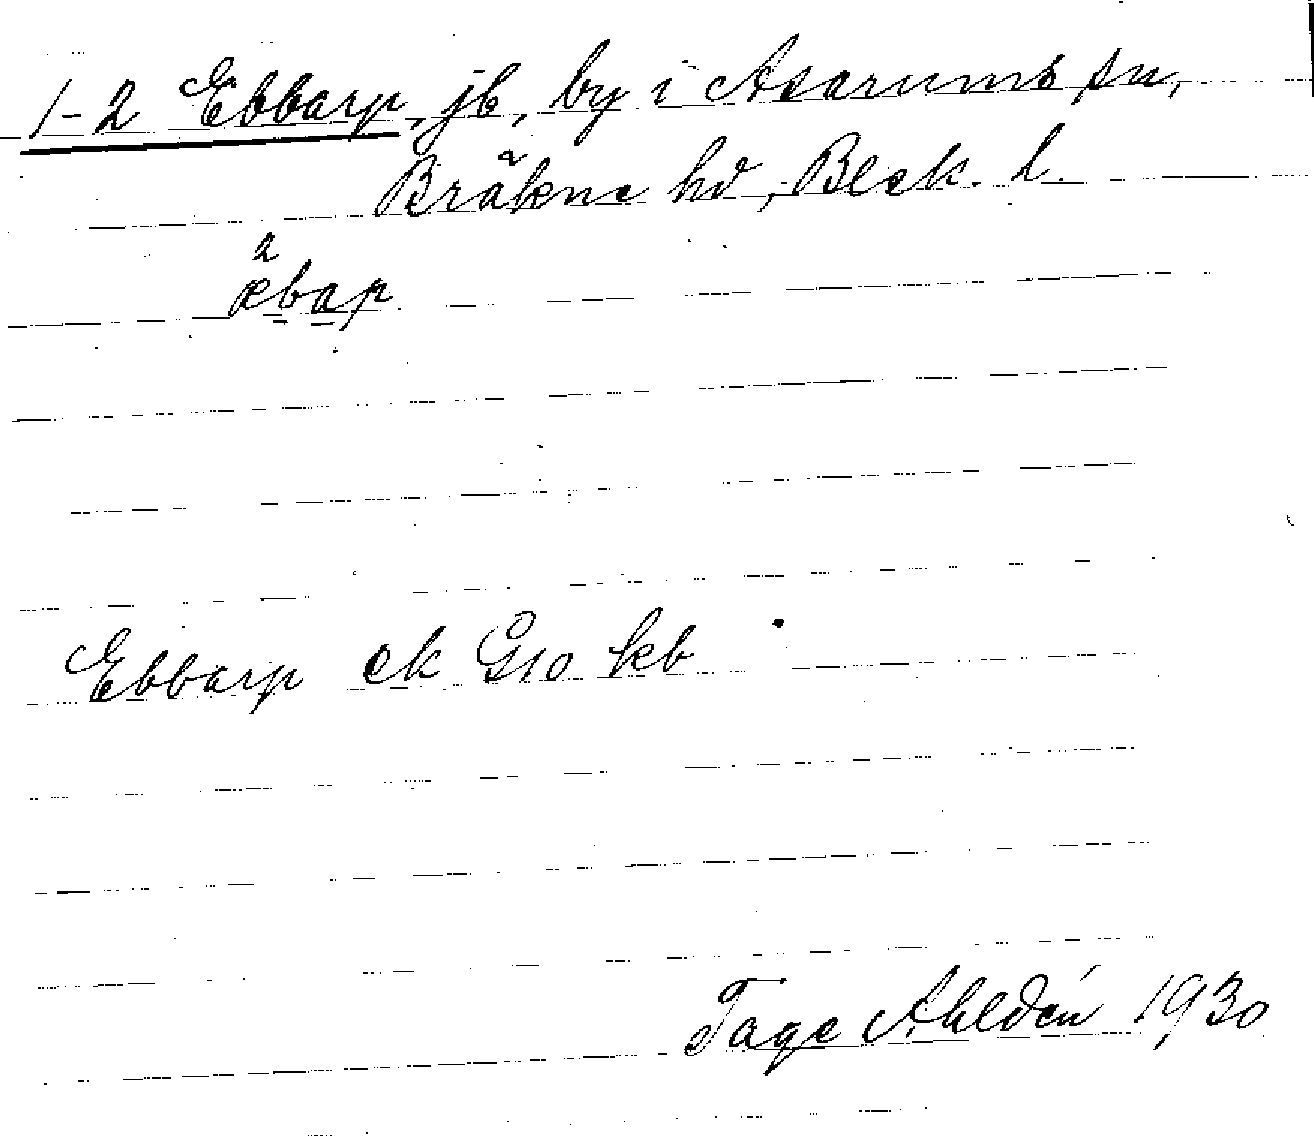 1-2 Ebbarp, jb, by i Asarums sn,
Bräkne hd, Blek. l.
2
æbap
Ebbarp ek G10 kb
Tage Ahldén 1930